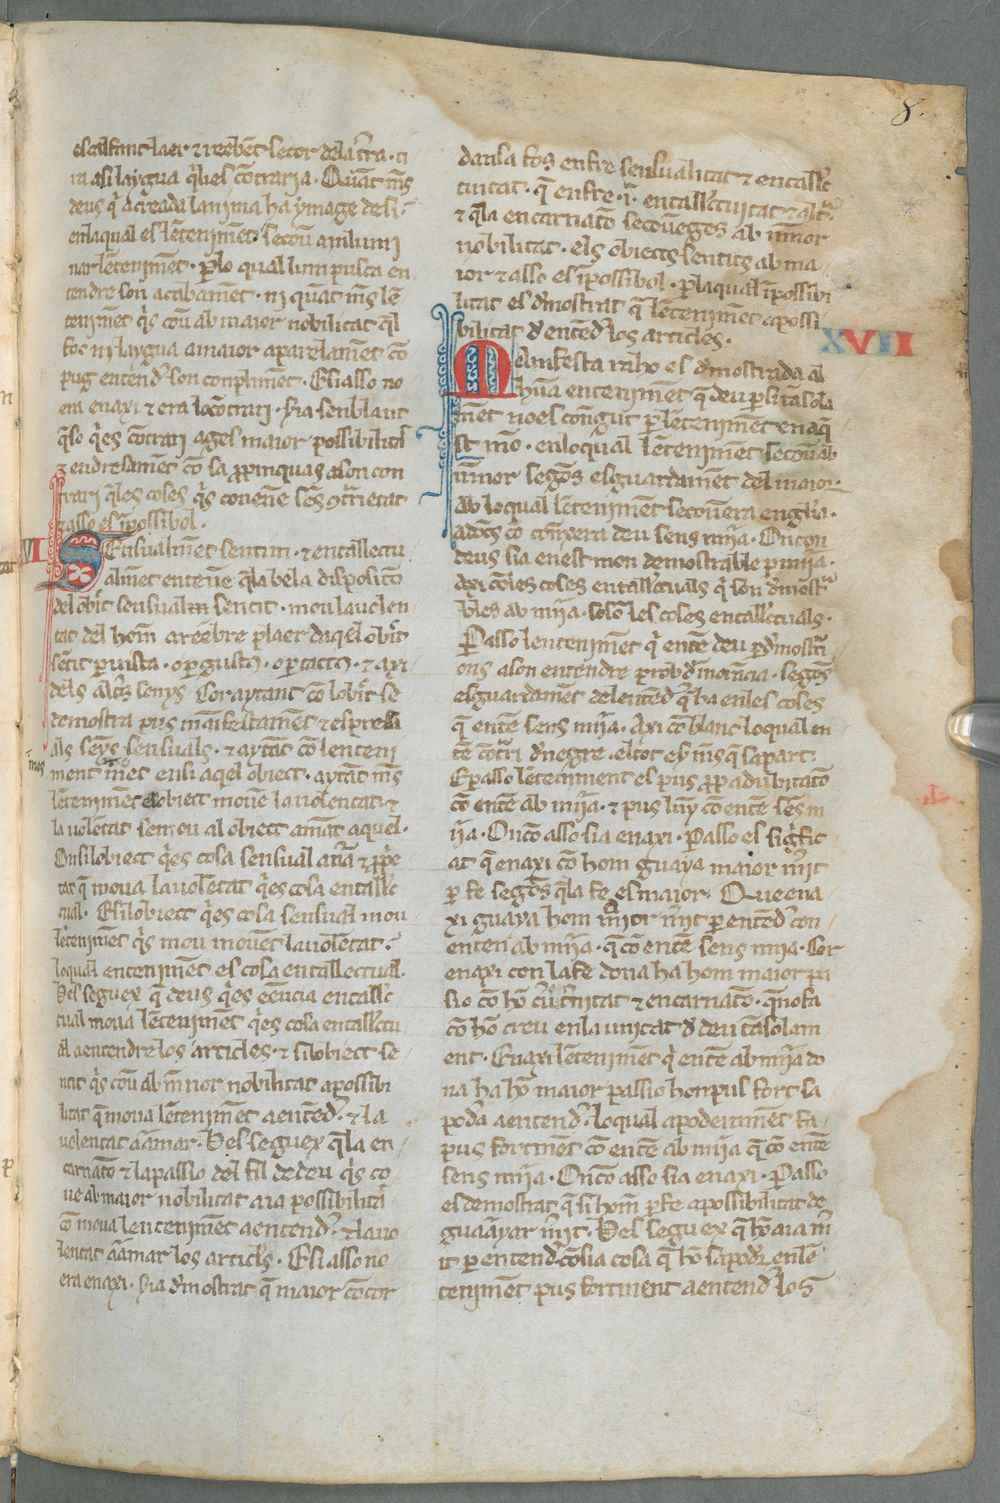 8.
escalfant laer & reebent secor dela tr̃a · ti
ra asi laygua q̃lies cõtraria · Quãt mẽs
deus q̃ a creada lanima ha ymage de si ·
enlaqual es lẽteniment · secoũ a inlumi
nar lẽteniment · p̃lo qual lum pusca en
tendre son acabamẽt · ni quãt mẽs lẽ
tenimẽt q̃s coũ ab maior nobilitat q̃l
foc ni laygua a maior aparelamẽt cõ
pug entend̃ son conplimẽt · E si asso no
era enaxi & era lo cõtrari · sia senblant
q̃so q̃es cõtrari ages maior possibilitat
& endresament cõ sa p̃pinquas a son con
trari q̃les coses q̃s conuene sẽs ꝯtrietat
& asso es ĩpossibol ·
VI
Sensualmẽt sentim · & entallectu
almẽt entenẽ q̃la bela disposicio
del obĩet sensual sentit · mou la uolen
tat del hom a reebre plaer daqel obĩet
sẽtit p uista · o p gustz · o p tacto · & axi
dels altr̃s senys · Cor aytant cõ lobĩet se
demostra pus mãifestamẽt & expres
als seys sensuals · & aytãt cõ lenteni
ment mẽt ensi aqel obiect · aytãt mẽs
lẽtenimẽt e lobiect mouẽ la uolentat · &
la uolẽtat senreu al obiect amãt aquel ·
On si lobiect q̃es cosa sensual
tat q̃ moua la uolẽtat q̃es cosa entallec
tual · E si lobiect q̃es cosa sensual mou
lẽtenimẽt q̃s mou mouẽt la uolẽtat ·
loqual entenimẽt es cosa entallectual ·
Vel seguex q̃ deus q̃es eẽncia entallec
tual moua lẽtenimẽt q̃es cosa entallectu
al a entendre los articles · & si lobiect se
ntit q̃s coũ ab mẽnor nobilitat a possibi
litat q̃ moua lẽtenimẽt a entẽd̃ · & la
uolentat a amar · Vel seguex q̃ la en
carnacõ & la passio del fil de deu q̃s co
ue ab maior nobilitat aia possibilitat
cõ moua lentenimẽt a entend̃ · & la uo
lentat a amar los articls · E si asso no
era enaxi · sia d̃mostrat q̃ maior cõcor
dansa fos enfre sensualitat & entallec
tuitat · q̃ enfre · ĩ · entallectuitat & altr̃a ·
& q̃la encarnacõ se coũeges ab mẽnor
nobilitat · els obiects sentits ab ma
ior & asso es ĩpossibol · p laqual ĩpossibi
litat es d̃mostrat q̃ lẽtenimẽt a possi
bilitat d̃ entẽd̃ los articles ·
XVIII
Manifesta raho es d̃mostrada al
hũa entenimẽt q̃ deu p si
mẽt no es congut p lẽtenimẽt en aq̃
st mõ · en loqual lẽtenimẽt se coũ ab
mẽnor segõs esguardamẽt del maior
ab loqual lẽtenimẽt se couenra en gl̃ia ·
adõcs cõ conexera deu sens mĩja · On con
deus sia en est mon demostrable p mĩja ·
axi cõ les coses entallectuals q̃ son d̃mostra
bles ab mĩja · solõ les coses entallectuals ·
P asso lentenimẽt q̃ entẽ deu p d̃mostraci
ons a son entendre segõs
esguardamẽt del entẽd̃ q̃ ha enles coses
q̃ entẽ sens mĩja · Axi cõ blanc loqual en
tẽ cõtrari d̃ negre · e tot es mẽs q̃ sa part ·
E p asso lẽtenimẽnt es pus a dubitacio
cõ entẽ ab mĩja · & pus luy cõ entẽ sẽs m
ĩja · On cõ asso sia enaxi · P asso es sig̃fic
at q̃ enaxi cõ hom guaya maior mẽrit
p fe segõs q̃la fe es maior · Que ena
xi guaya hom maior mẽrit p entẽd̃ con
entẽ ab mĩja · q̃ cõ entẽ sens mĩja · Cor
enaxi con la fe dona ha hom maior pa
ssio cõ hõ creu trinitat & encarnacõ · q̃ no fa
cõ hõ creu en la unitat d̃ deu tã solam
ent · Enaxi lẽtenimẽt q̃ entẽ ab mĩja do
na ha hõ maior passio hon pus fort sa
poda a entend̃ · loqual apoderament fa
pus fortmẽt cõ entẽ ab mĩja q̃ cõ entẽ
sens mĩja · On cõ asso sia enaxi · P asso
es demostrat q̃ si hom p fe a possibilitat de
guaãyar mẽrit · Vel seguex q̃ hõ aia mẽr
it p entend̃ cõ sia cosa q̃ hõ sapod̃ en lẽ
tenimẽt pus fortment a entend̃ los